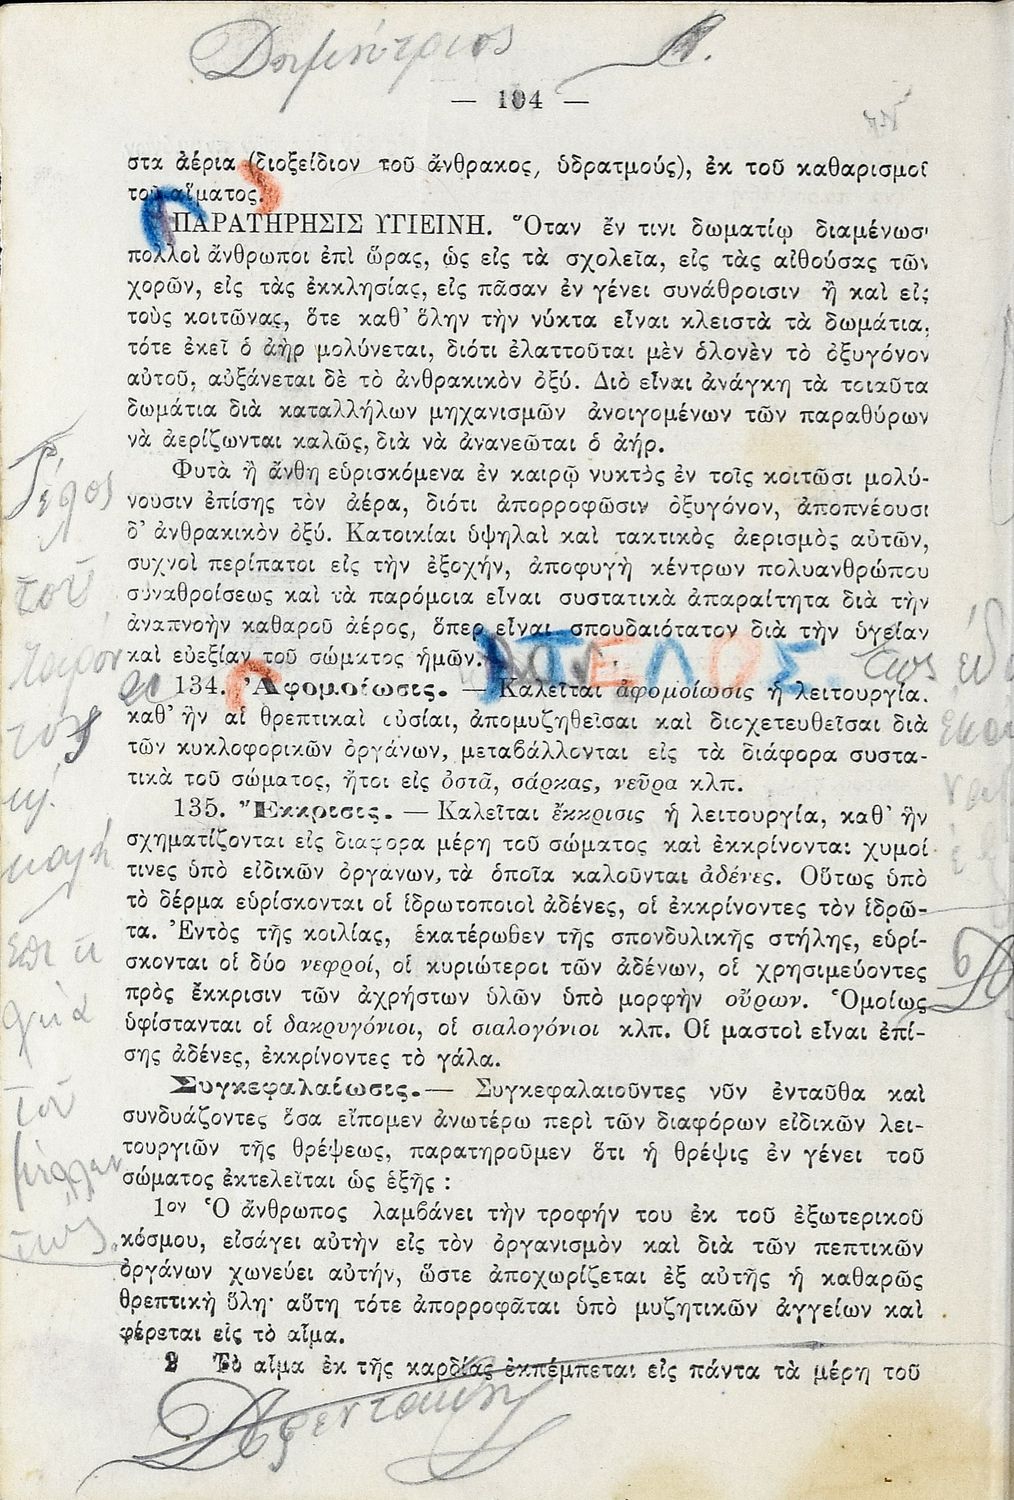 Δημήτριος Α.
— 104 —
στα ἀέρια (διοξείδιον τοῦ ἄνθρακος, ὑδρατμούς), ἐκ τοῦ καθαρισμοῦ
τοῦ αἵματος.
ΠΑΡΑΤΗΡΗΣΙΣ ΥΓΙΕΙΝΗ. Ὅταν ἔν τινι δωματίῳ διαμένωσι
πολλοὶ ἄνθρωποι ἐπὶ ὥρας, ὡς εἰς τὰ σχολεῖα, εἰς τὰς αἰθούσας τῶν
χορῶν, εἰς τὰς ἐκκλησίας, εἰς πᾶσαν ἐν γένει συνάθροισιν ἢ καὶ εἰς
τοὺς κοιτῶνας, ὅτε καθ' ὅλην τὴν νύκτα εἶναι κλειστὰ τὰ δωμάτια,
τότε ἐκεῖ ὁ ἀὴρ μολύνεται, διότι ἐλαττοῦται μὲν ὁλονὲν τὸ ὀξυγόνον
αὐτοῦ, αὐξάνεται δὲ τὸ ἀνθρακικὸν ὀξύ. Διὸ εἶναι ἀνάγκη τὰ τοιαῦτα
δωμάτια διὰ καταλλήλων μηχανισμῶν ἀνοιγομένων τῶν παραθύρων
νὰ ἀερίζωνται καλῶς, διὰ νὰ ἀνανεῶται ὁ ἀήρ.
Φυτὰ ἢ ἄνθη εὑρισκόμενα ἐν καιρῷ νυκτὸς ἐν τοῖς κοιτῶσι μολύ-
νουσιν ἐπίσης τὸν ἀέρα, διότι ἀπορροφῶσιν ὀξυγόνον, ἀποπνέουσι
δ' ἀνθρακικὸν ὀξύ. Κατοικίαι ὑψηλαὶ καὶ τακτικὸς ἀερισμὸς αὐτῶν,
συχνοὶ περίπατοι εἰς τὴν ἐξοχήν, ἀποφυγὴ κέντρων πολυανθρώπου
συναθροίσεως καὶ τὰ παρόμοια εἶναι συστατικὰ ἀπαραίτητα διὰ τὴν
ἀναπνοὴν καθαροῦ ἀέρος, ὅπερ εἶναι σπουδαιότατον διὰ τὴν ὑγείαν
καὶ εὐεξίαν τοῦ σώματος ἡμῶν. ΤΕΛΟΣ.
134. Ἀφομοίωσις. — Καλεῖται ἀφομοίωσις ἡ λειτουργία,
καθ' ἣν αἱ θρεπτικαὶ οὐσίαι, ἀπομυζηθεῖσαι καὶ διοχετευθεῖσαι διὰ
τῶν κυκλοφορικῶν ὀργάνων, μεταβάλλονται εἰς τὰ διάφορα συστα-
τικὰ τοῦ σώματος, ἤτοι εἰς ὀστᾶ, σάρκας, νεῦρα κλπ.
135. Ἔκκρισις. — Καλεῖται ἔκκρισις ἡ λειτουργία, καθ' ἣν
σχηματίζονται εἰς διάφορα μέρη τοῦ σώματος καὶ ἐκκρίνονται χυμοί
τινες ὑπὸ εἰδικῶν ὀργάνων, τὰ ὁποῖα καλοῦνται ἀδένες. Οὕτως ὑπὸ
τὸ δέρμα εὑρίσκονται οἱ ἱδρωτοποιοὶ ἀδένες, οἱ ἐκκρίνοντες τὸν ἱδρῶ-
τα. Ἐντὸς τῆς κοιλίας, ἑκατέρωθεν τῆς σπονδυλικῆς στήλης, εὑρί-
σκονται οἱ δύο νεφροί, οἱ κυριώτεροι τῶν ἀδένων, οἱ χρησιμεύοντες
πρὸς ἔκκρισιν τῶν ἀχρήστων ὑλῶν ὑπὸ μορφὴν οὔρων. Ὁμοίως
ὑφίστανται οἱ δακρυγόνιοι, οἱ σιαλογόνιοι κλπ. Οἱ μαστοὶ εἶναι ἐπί-
σης ἀδένες, ἐκκρίνοντες τὸ γάλα.
Συγκεφαλαίωσις.— Συγκεφαλαιοῦντες νῦν ἐνταῦθα καὶ
συνδυάζοντες ὅσα εἴπομεν ἀνωτέρω περὶ τῶν διαφόρων εἰδικῶν λει-
τουργιῶν τῆς θρέψεως, παρατηροῦμεν ὅτι ἡ θρέψις ἐν γένει τοῦ
σώματος ἐκτελεῖται ὡς ἑξῆς :
1ον Ὁ ἄνθρωπος λαμβάνει τὴν τροφήν του ἐκ τοῦ ἐξωτερικοῦ
κόσμου, εἰσάγει αὐτὴν εἰς τὸν ὀργανισμὸν καὶ διὰ τῶν πεπτικῶν
ὀργάνων χωνεύει αὐτήν, ὥστε ἀποχωρίζεται ἐξ αὐτῆς ἡ καθαρῶς
θρεπτικὴ ὕλη· αὕτη τότε ἀπορροφᾶται ὑπὸ μυζητικῶν ἀγγείων καὶ
φέρεται εἰς τὸ αἷμα.
2 Τὸ αἷμα ἐκ τῆς καρδίας ἐκπέμπεται εἰς πάντα τὰ μέρη τοῦ
Τέλος
τοῦ